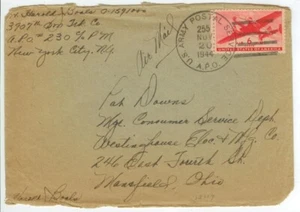 Lt. Harold J. Goals O-1591944
3907th Grp. Sal Co
A.P.O # 230 % P.M.
New York City, N.Y.
Air Mail
U.S. ARMY POSTAL S
A.P.O.
258
NOV
20
1944
UNITED STATES OF AMERICA
Pat Downs
Mgr. Consumer Service Dept
Westinghouse Elec. & Mfg. Co.
246 East Fourth St.
Mansfield, Ohio